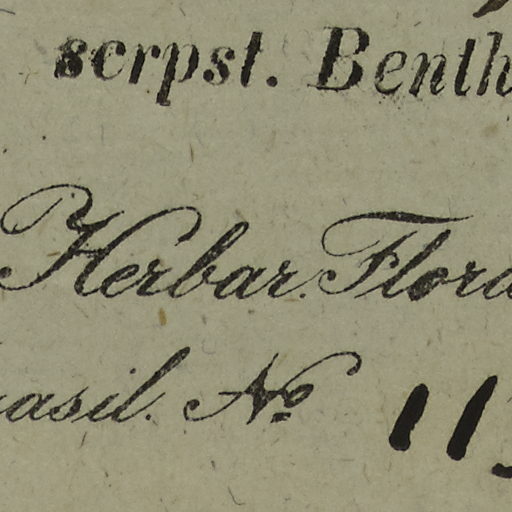 scrpst. Benth
Herbar. Flora
asil. No 11